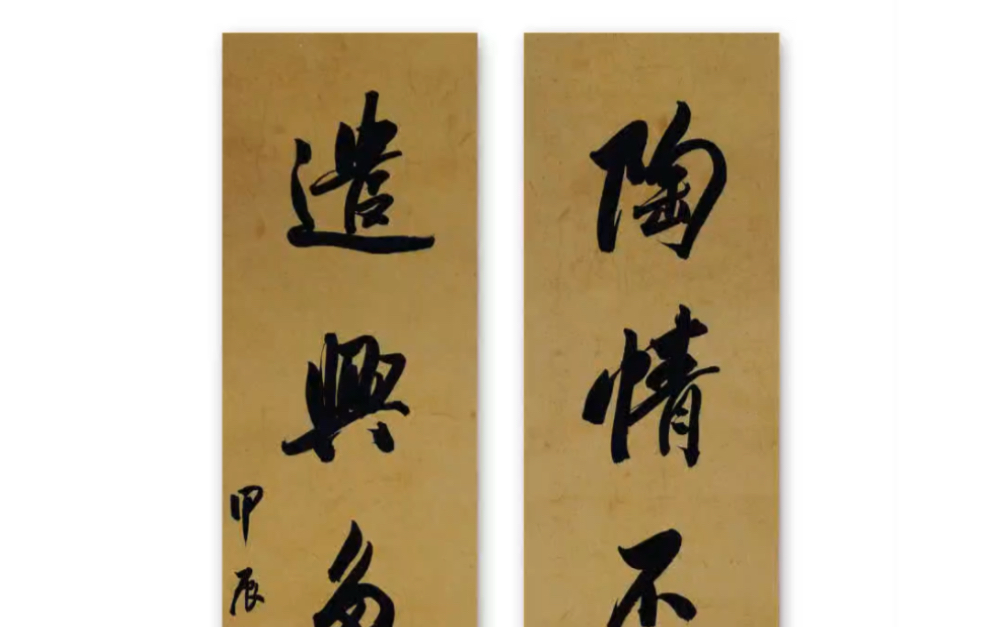 陶情不
遣興多
甲辰